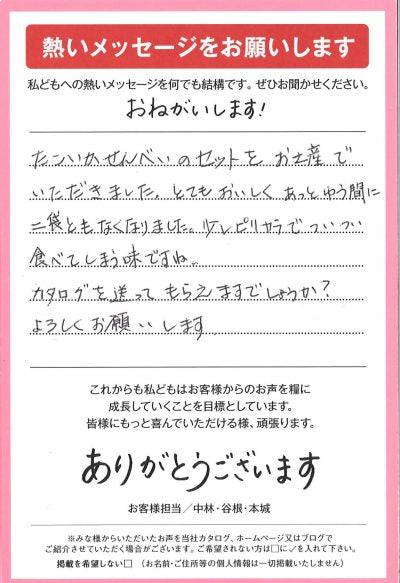 熱いメッセージをお願いします
私どもへの熱いメッセージを何でも結構です。ぜひお聞かせください。
おねがいします!
たこいかせんべいのセットを お土産で
いただきました。とてもおいしく あっとゆう間に
二袋ともなくなりました。少しピリカラで ついつい
食べてしまう味ですね。
カタログを送って もらえますでしょうか?
よろしくお願いします
これからも私どもはお客様からのお声を糧に
成長していくことを目標としています。
皆様にもっと喜んでいただける様、頑張ります。
ありがとうございます
お客様担当/中林・谷根・本城
※みな様からいただいたお声を当社カタログ、ホームページ又はブログで
ご紹介させていただく場合がございます。ご希望されない方は□に✓を入れて下さい。
掲載を希望しない□ (お名前・ご住所等の個人情報は一切掲載いたしません)